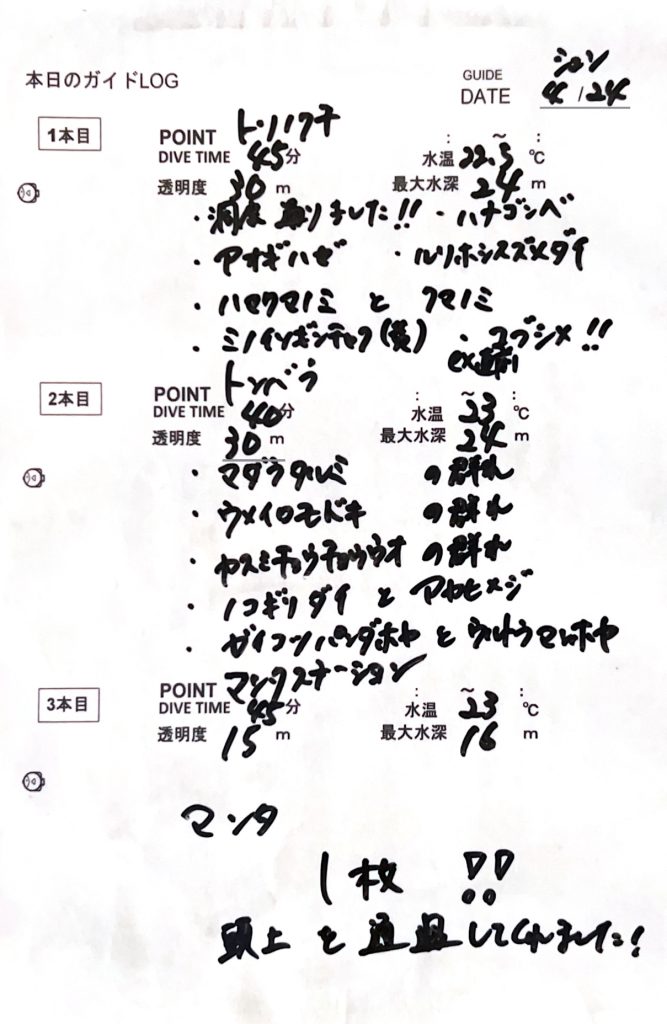 本日のガイドLOG
GUIDE ション
DATE 4/24
1本目
POINT トンノクチ
: ~ :
DIVE TIME 45分 水温 22.5 ℃
透明度 30 m 最大水深 24 m
・洞窟 通りました!! ・ハナゴンベ
・アオギハゼ ・ルリホシスズメダイ
・ハマクマノミ と クマノミ
・ミノイソギンチャク(黄) ・コブシメ!!
2本目
POINT トンバラ
: ~ :
DIVE TIME 40分 水温 23 ℃
透明度 30 m 最大水深 24 m
・マダラタルミ の群れ
・ウメイロモドキ の群れ
・カスミチョウチョウウオ の群れ
・ノコギリダイ と アカヒメジ
・ガイコツパンダホヤ と ウルトラマンホヤ
3本目
POINT マンタステーション
: ~ :
DIVE TIME 45分 水温 23 ℃
透明度 15 m 最大水深 16 m
マンタ
1枚 !!
頭上 を 通過してくれました!